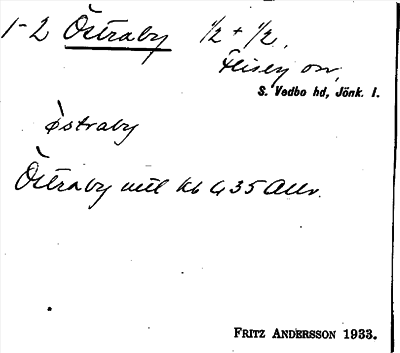 1-2 Östraby 1/2 + 1/2.
Flisby sn,
S. Vedbo hd, Jönk. l.
òstraby
Östraby mtl Kb 435
FRITZ ANDERSSON 1933.